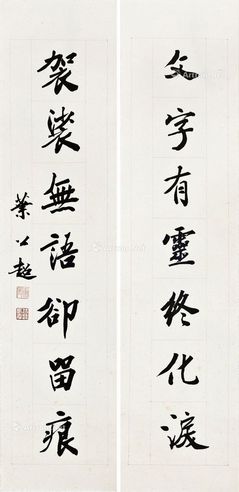 文字有靈終化淚
袈裟無語卻留痕
葉公超